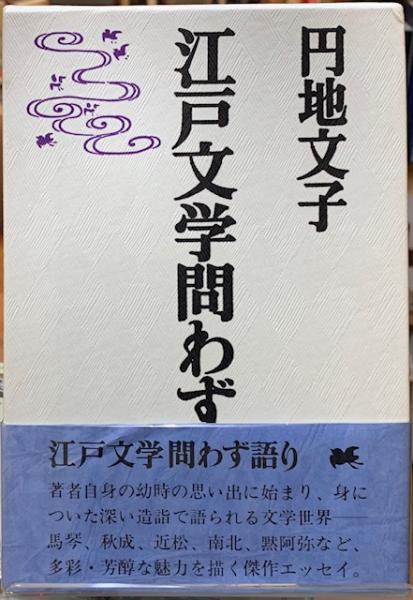 円地文子
江戸文学問わず
江戸文学問わず語り
著者自身の幼時の思い出に始まり、身に
ついた深い造詣で語られる文学世界――
馬琴、秋成、近松、南北、黙阿弥など、
多彩・芳醇な魅力を描く傑作エッセイ。